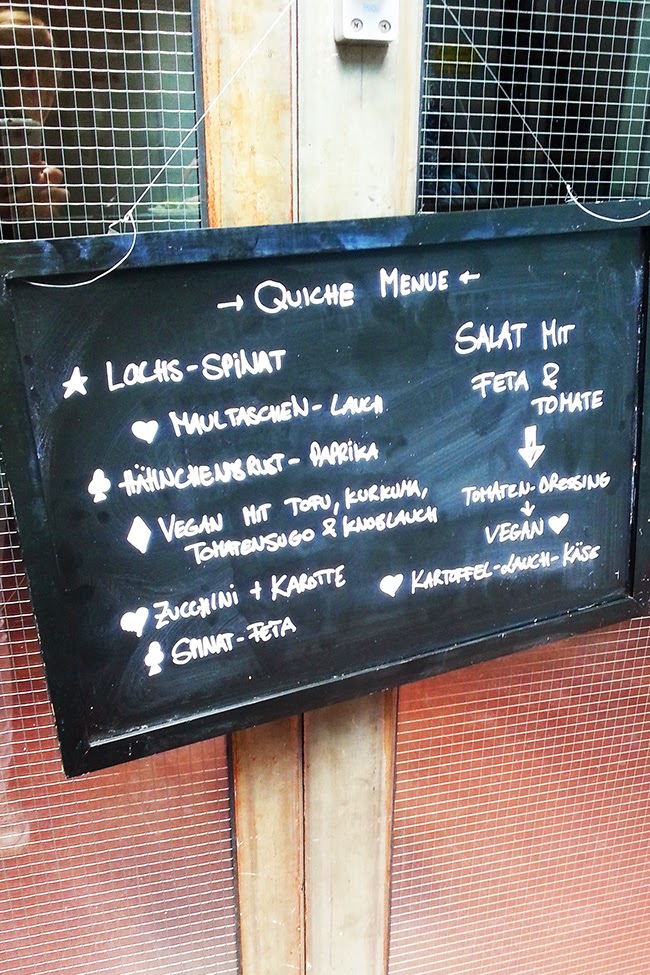 → QUICHE MENUE ←
★ LOCHS-SPINAT
♥ MAULTASCHEN-LAUCH
♣ HÄHNCHENBRUST-PAPRIKA
♦ VEGAN MIT TOFU, KURKUMA,
TOMATENSUGO & KNOBLAUCH
♥ ZUCCHINI + KAROTTE
♣ SPINAT-FETA
SALAT MIT
FETA &
TOMATE
↓
TOMATEN-DRESSING
↓
VEGAN ♥
♥ KARTOFFEL-LAUCH-KÄSE